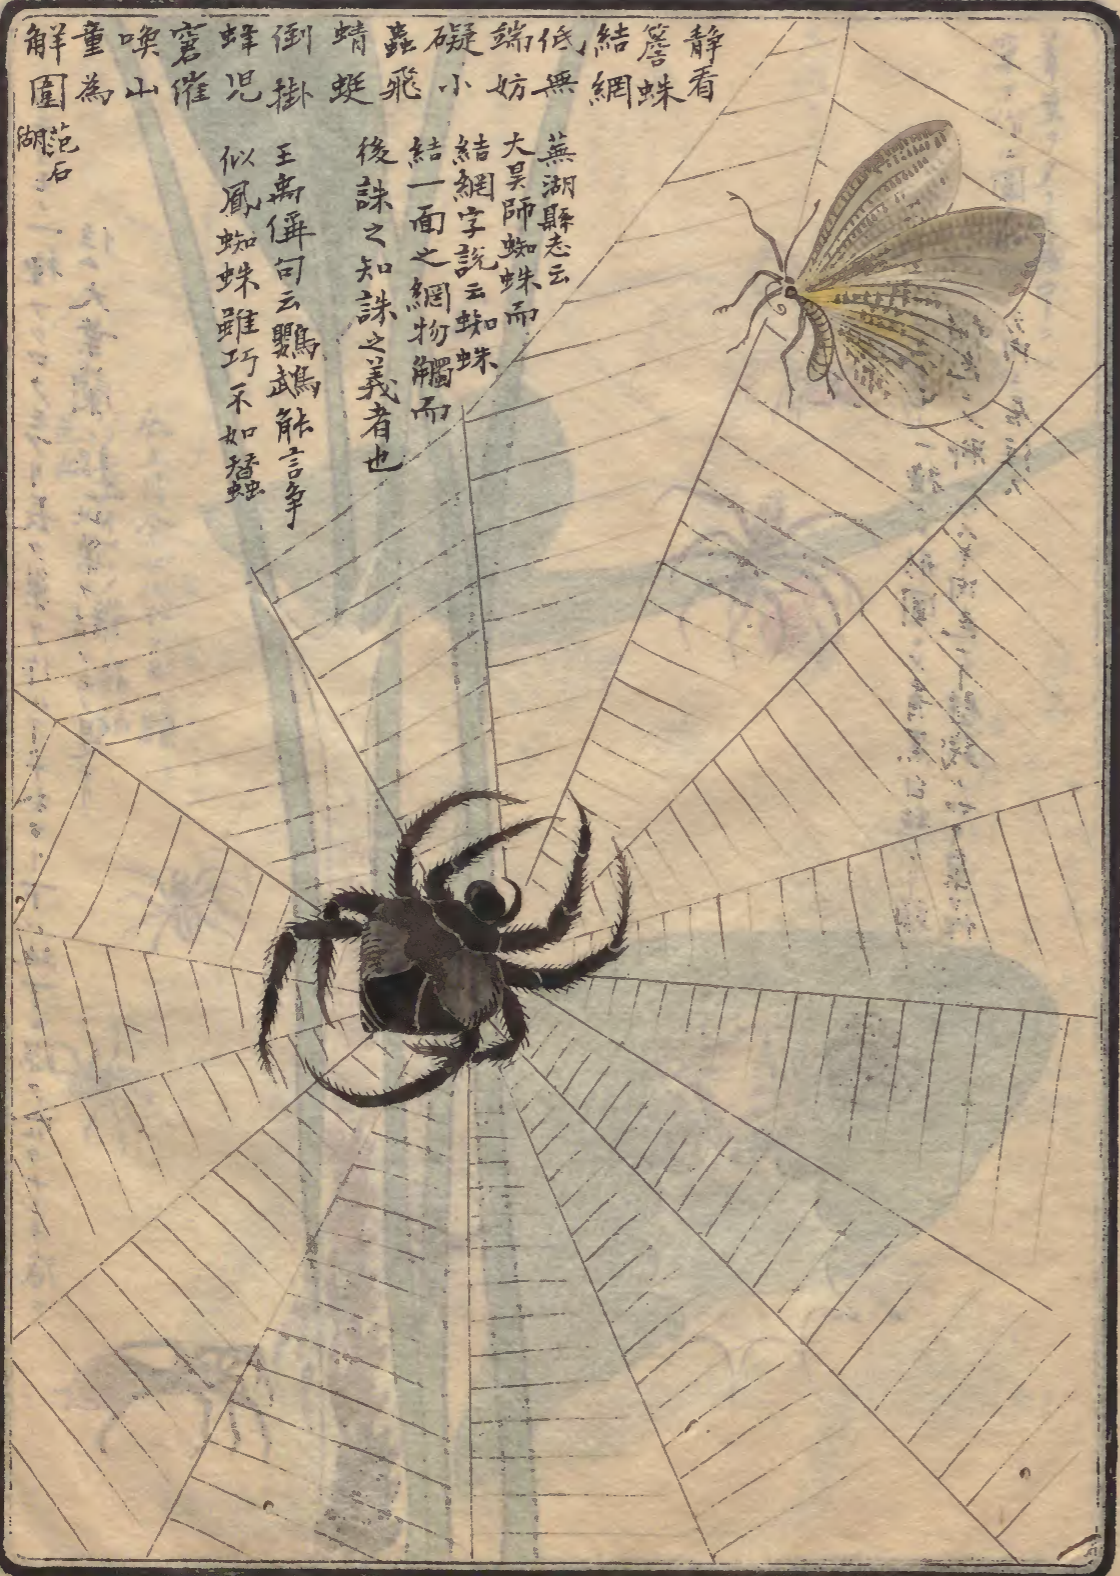 靜看
簷蛛
結網
低無
端妨
礙小
蟲飛
蜻蜓
倒掛
蜂児
窘催
喚山
童為
觧圍
范石
湖
蕪湖縣志云
大昊師蜘蛛而
結網字說云蜘蛛
結一面之網物觸而
後誅之知誅之義者也
王禹偁句云鸚鵡能言爭
似鳳蜘蛛雖巧不如蠶